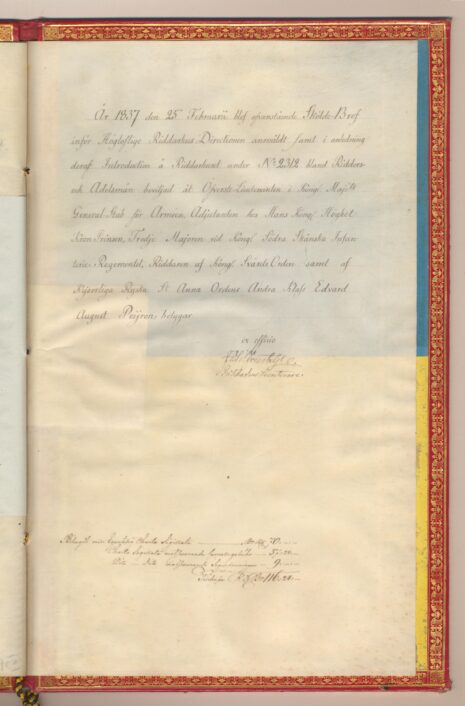 År 1837 den 25 Februarii blef ofvanstående Sköldebref
inför Höglofliga Riddarhus Directionen anmäldt samt i anledning
deraf Introduction å Riddarhuset under No 2312 bland Ridders-
och Adelsmän beviljad åt Öfverste-Lieutenanten i Kongl. Maj:ts
General-Stab för Arméen, Adjutanten hos Hans Kongl. Höghet
Kron-Prinsen, Tredje Majoren vid Kongl. Södra Skånska Infan-
terie-Regementet, Riddaren af Kongl. Svärds Orden samt af
Kejserliga Ryska St Anna Ordens Andra Klass Edvard
August Peijron; betygar
ex officio
Belagdt med Charta Sigillata 70
Charta Sigillata 37.20
9
116.20